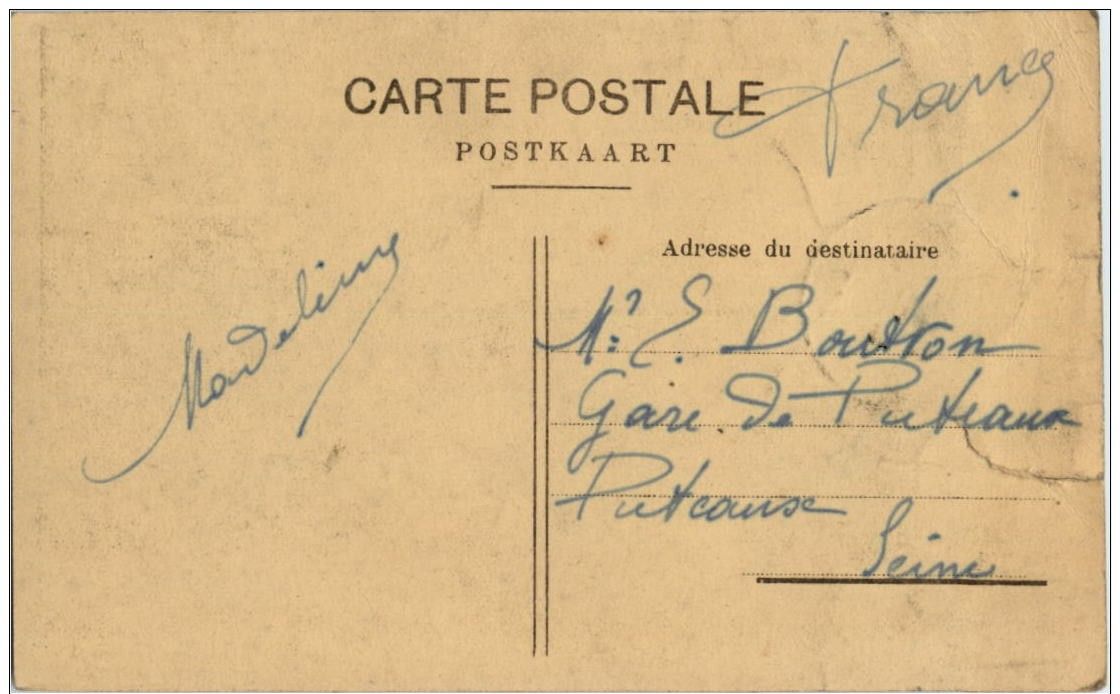 CARTE POSTALE
POSTKAART
France
Madeleine
Adresse du destinataire
Mr E. Boutron
Gare de Puteaux
Puteaux
Seine